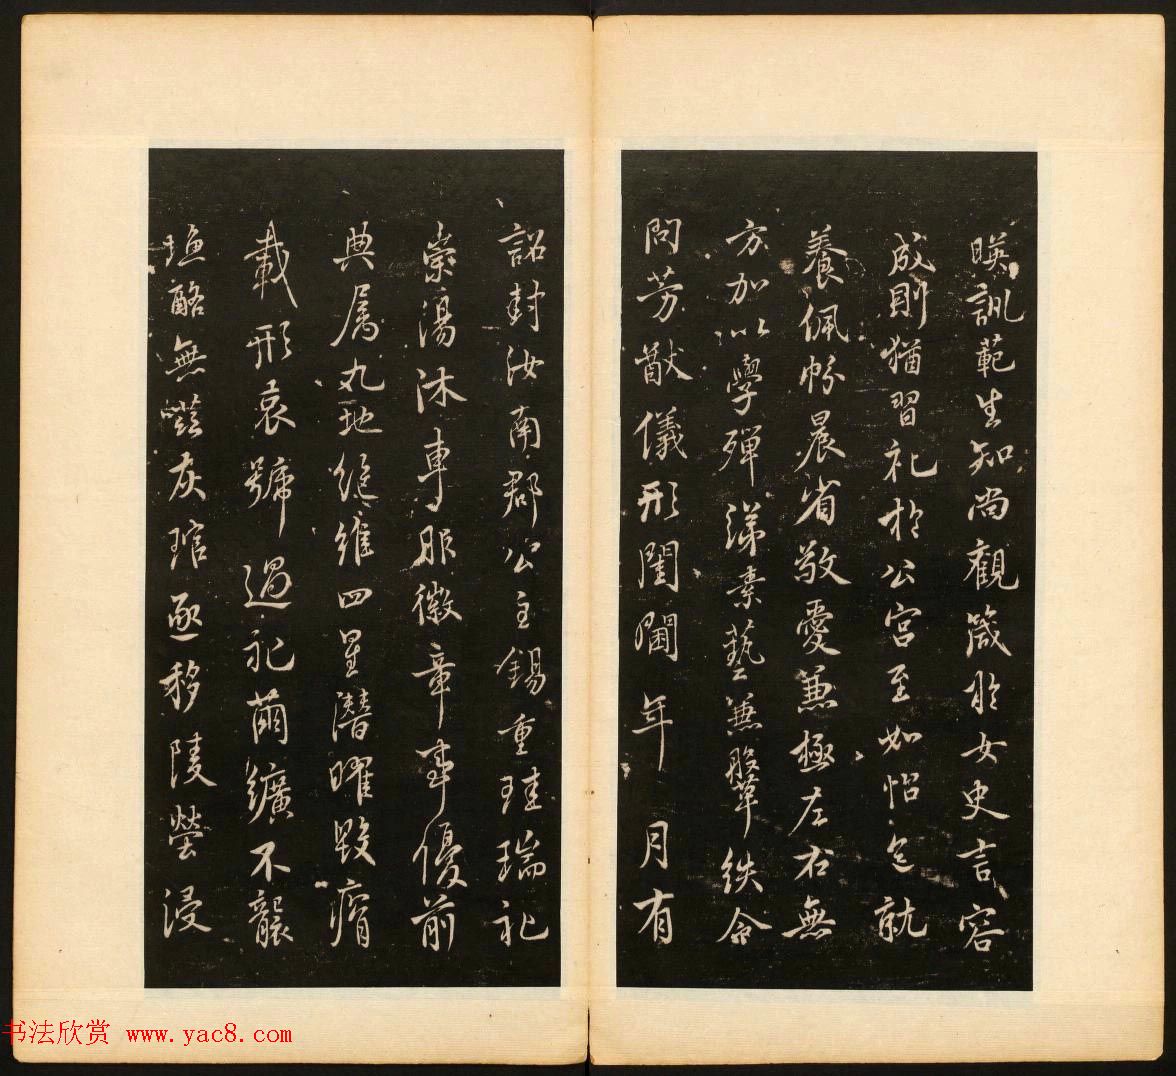 暎訓範生知尚觀箴於女史言容
成則猶習礼於公宮至如怡色就
養佩帉晨省敬愛兼極左右無
方加以學殫綈素藝兼鞶紩令
問芳猷儀形閨閫年月有
詔封汝南郡公主錫重珪瑞礼
崇湯沐車服徽章事優前
典屬九地絕維四星潛曜毀瘠
載形哀號過礼繭纊不襲
塩酪無嗞灰琯亟移陵塋浸
书法欣赏 www.yac8.com